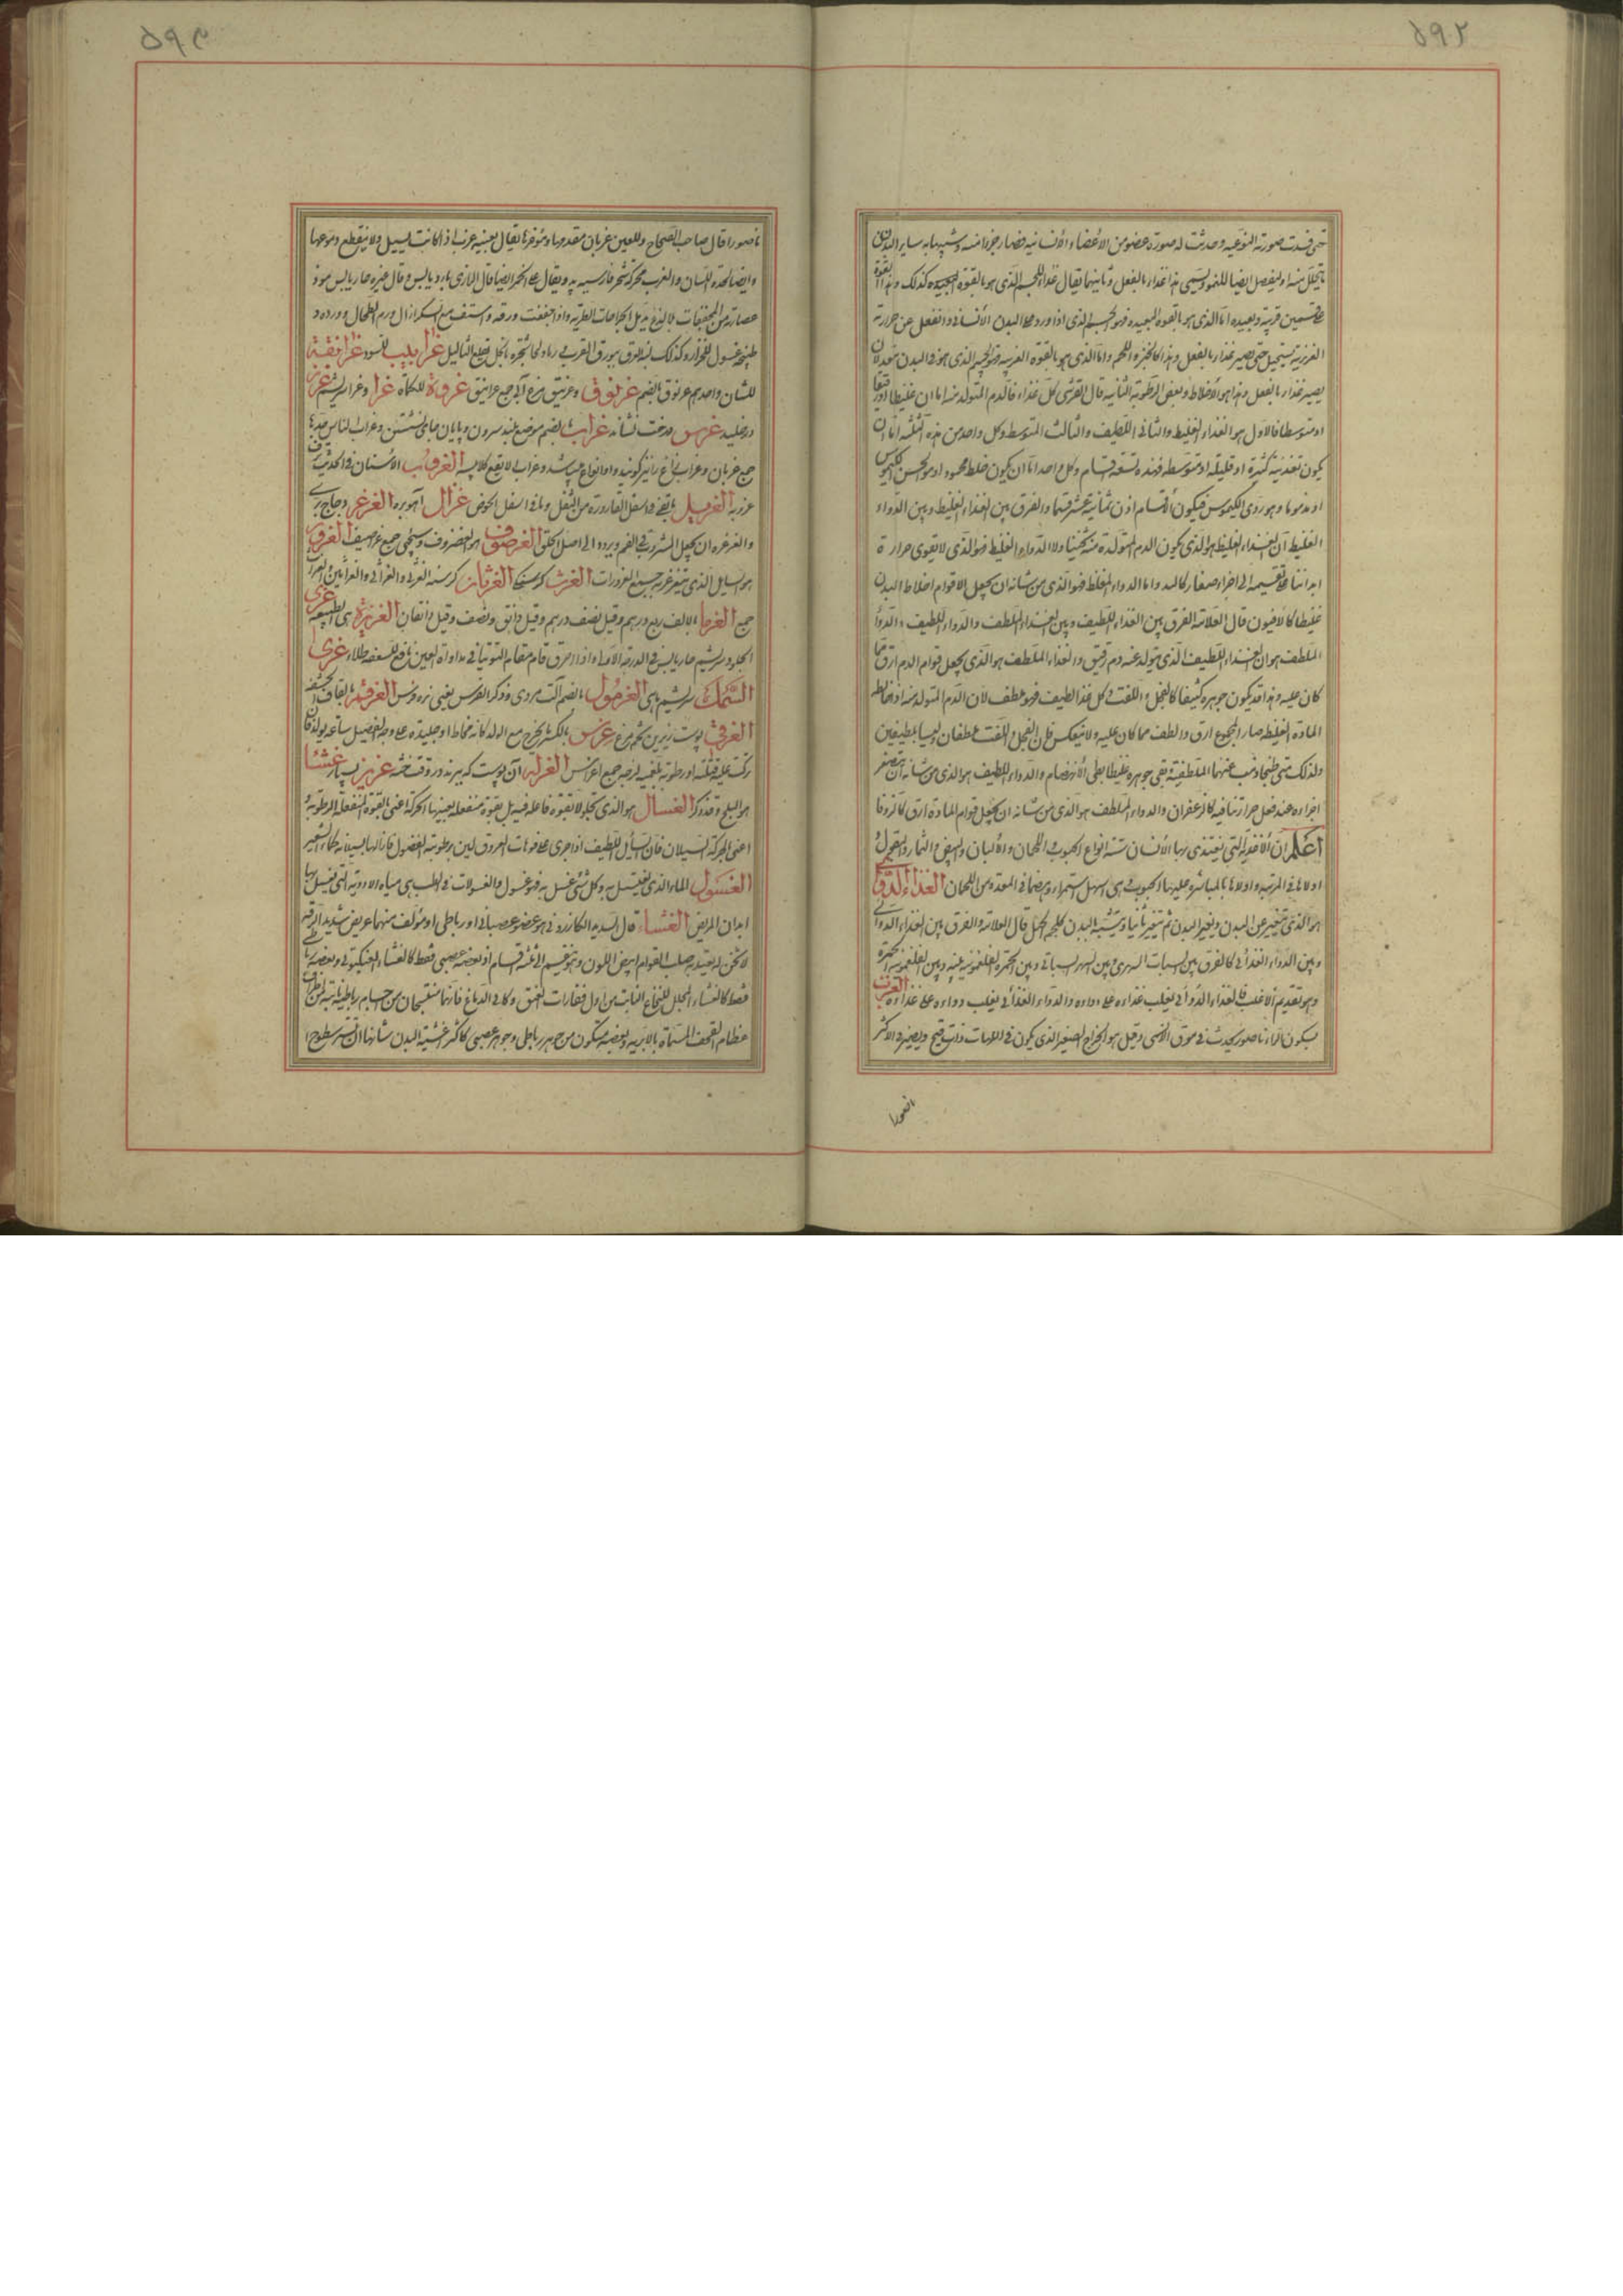 ٥٩٢
حتى فسدت صورته النوعية وحدثت له صورة عضو من الأعضاء الأنسانية فصار جزءا منه وشبيها به سائر البدن
ما يتحلل منه او ليفصل ايضا للنمو ويسمى هذا غذاء بالفعل وثانيهما يقال غذاء للجسم الذى هو بالقوة البعيدة كذلك وهذا
على قسمين قريبة وبعيدة اما الذى هو بالقوة البعيدة فهو الجسم الذى اذا ورد على البدن الأنسانى وانفعل عن حرارته
الغريزية يستحيل حتى يصير غذاء بالفعل وهذا كالخبز واللحم واما الذى هو بالقوة القريبة فهو الجسم الذى هو فى البدن معد لان
يصير غذاء بالفعل وهذا هو الأخلاط وبعض الرطوبة الثانية قال القرشى كل غذاء فالدم المتولد منه اما ان غليظا او رقيقا
او متوسطا فالاول هو الغذاء الغليظ والثانى اللطيف والثالث المتوسط وكل واحد من هذه الثلثة اما ان
يكون تغذيته كثيرة او قليلة او متوسطة فهذه تسعة اقسام وكل واحد اما ان يكون خلط محمود او هو الحسن الكيموس
او مذموما وهو ردى الكيموس فيكون الأقسام اذن ثمانية عشر قسما والفرق بين الغذاء الغليظ وبين الدواء
الغليظ ان الغذاء الغليظ هو الذى يكون الدم المتولد منه ثخينا والدواء الغليظ فهو الذى لا يقوى حرارة
ابداننا على تقسيمه الى اجزاء صغار كالبد واما الدواء المغلظ فهو الذى من شانه ان يجعل قوام اخلاط البدن
غليظا كالافيون قال العلامة الفرق بين الغذاء اللطيف وبين الغذاء الملطف والدواء اللطيف والدواء
الملطف هو ان الغذاء اللطيف الذى يتولد عنه دم رقيق والغذاء الملطف هو الذى يجعل قوام الدم ارق مما
كان عليه وهذا قد يكون جوهره كثيفا كالفجل واللفت فى كل غذا لطيف فهو ملطف لان الدم المتولد منه اذا خالط
المادة الغليظة صار المجموع ارق والطف مما كان عليه ولا ينعكس فان الفجل واللفت ملطفان وليسا بلطيفين
ولذلك متى طبخا وذهب عنهما الملطفية بقى جوهره غليظا بطى الأنهضام والدواء اللطيف هو الذى من شانه ان يتصغر
اجزاءه عند فعل حرارتنا فيه كالزعفران والدواء الملطف هو الذى من شانه ان يجعل قوام المادة ارق كالزوفا
اعلم ان الأغذية التى يتغذى بها الأنسان ستة انواع الحبوب واللحمان والألبان والبيض والثمار والبقول
اولاها فى المرتبة واولاها بالمباشرة عليها الحبوب هى اسهل استمراء وهضما فى المعدة من اللحمان الغذاء الدوائى
هو الذى يتغير عن البدن ويغير البدن ثم يتغير ثانيا ويتشبه بالبدن كلحم الحمل قال العلامة والفرق بين الغذاء الدوائى
وبين الدواء الغذائى كالفرق بين السبات السهرى وبين السهر السباتى وبين الحمرة الفلغمونية وبين الفلغمونى الحمرة
وهو تقديم الأغلب فالغذاء الدوائى يغلب غذاءه على دواءه والدواء الغذائى يغلب دواءه على غذاءه الغرب
بسكون الراء ناصور يحدث فى موق الانسى وقيل هو الخراج الصغير الذى يكون فى اللهات ذات قيح ويصير فى الاكثر
ناصورا
٥٩٣
ناصورا قال صاحب الصحاح وللعين غربان مقدمها ومؤخرها يقال بعينه غرب اذا كانت تسيل ولا ينقطع دموعها
وايضا لحدة اللسان والغرب محركة شجر فارسيه پده ويقال على الخمر ايضا قال الرازى بارد يابس وقال غيره حار يابس موذ
عصارته من المجففات بلا لذع يدمل الجراحات الطرية واذا جففت ورقه واستف مع السكر ازال ورم الطحال وورده
طبيخه غسول للحزاز وكذلك البورق القربى رماد لحا شجره بالخل يقلع الثاليل غرابيب للسود غرانقة
للشبان واحدهم غرنوق بالضم غرنوق وغرنيق مرغ آبى جمع غرانيق غروة للكماة غرا وغراء سريشم غرز
در خليدن غرس درخت نشاندن غراب بالضم موضع بلند سرون وپايان جاى نشستن وغراب الناس حدها
جمع غربان وغراب زاغ را نيز گويند وانواع مى باشد وغراب لا بقع كلاپيسه الغروب الأسنان فى الحديث
عزوبة الغربيل ما يبقى فى اسفل القارورة من الثفل وما فى اسفل الحوض غزال آهو بره الغرغر دجاج برى
والغرغرة ان يجعل المشروب فى الفم ويردد الى اصل الحلق الغرضوف هو الغضروف وسيجئ جمع غراضيف الغرور
هو السايل الذى يتغرغر به جمع الغرورات الغرث گرسنگى الغرثان گرسنه الغرثى والغراثى
جمع الغرما بالالف ربع درهم وقيل نصف درهم وقيل دانق ونصف وقيل دانقان الغريزة هى الطبيعة غرى
الجلود سريشم حار يابس فى الدرجة الأولى واذا احرق قام مقام التوتيا فى مداواة العين نافع للسعفة طلاء غرى
السمك سريشم ماهى الغرمول بالضم آلت مردى وذكر الفرس يعنى نره Ùفرس الغرقئ بالقاف
الغرقى پوست زيرين تخم مرغ غرس بالكسر ما يخرج مع الولد كانه مخاط او جليدة على وجه الفصيل ساعة يولد فان
تركت عليه قتلته او رطوبة بلغمية لزجة جمع اغراس الغرلة آن پوست كه ببرند در وقت ختنه غزير بسيار غشا
هو البلح وقد ذكر الغسال هو الذى يجلو لا بقوة فاعلة فيه بل بقوة منفعلة يعينها الحركة اعنى بالقوة المنفعلة الرطوبة
اعنى بالحركة السيلان فان السائل اللطيف اذا جرى على فوهات العروق لين برطوبته الفضول فازالها بسيلانه كماء الشعير
الغسول الماء الذى يغتسل به وكل شئ غسل به فهو غسول والغسولات فى الطب هى مياه الادوية التى تغسل بها
ابدان المريض الغشاء قال السديد الكازرونى هو عضو عصبانى او رباطى او مؤلف منهما عريض شديد الرقة
لا ثخن له يعتد به صلب القوام ابيض اللون وهو ينقسم الى ثلثة اقسام اذ بعضه عصبى فقط كالغشاء العنكبوتى وبعضه رباطى
فقط كالغشاء المجلل للنخاع النابت من اول فقارات العنق وكامى الدماغ فانهما منتسجان من اجسام رباطية نابتة
عظام القحف المسماة بالابرية وبعضه متكون من جوهر رباطى وجوهر عصبى كاكثر اغشية البدن شانها ان تستر سطوح